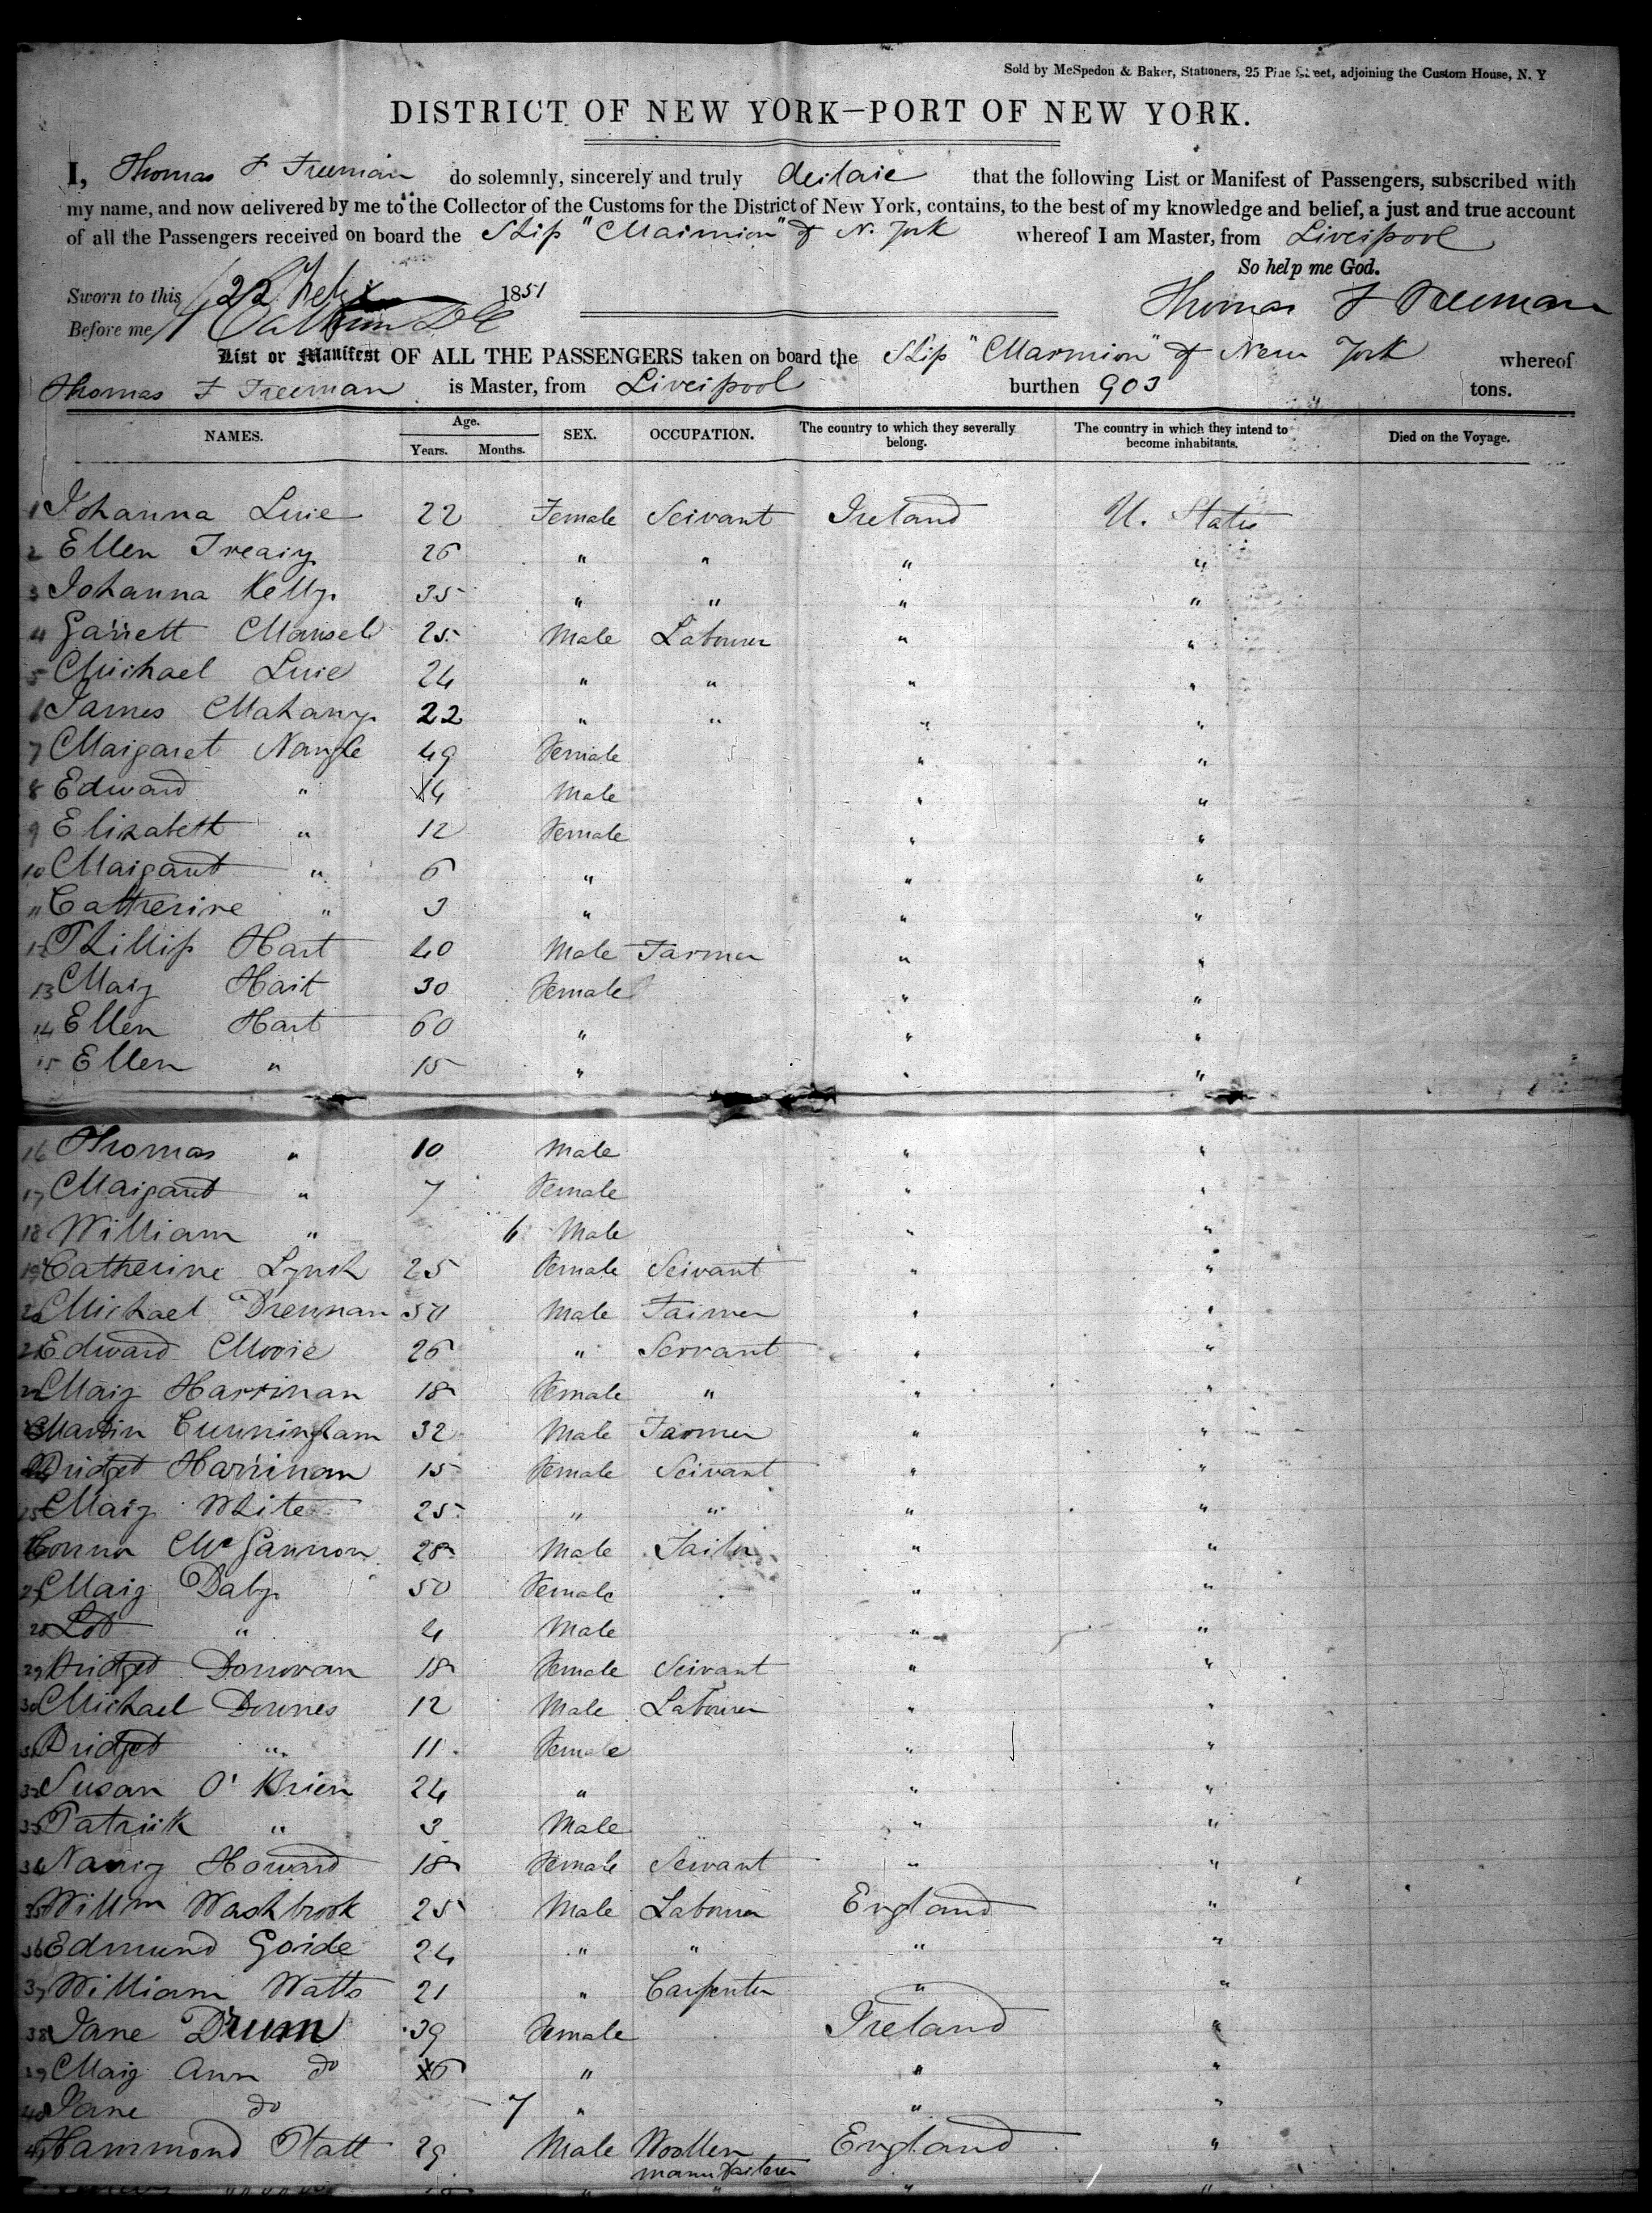 Sold by McSpedon & Baker, Stationers, 25 Pine Street, adjoining the Custom House, N. Y
DISTRICT OF NEW YORK—PORT OF NEW YORK.
I, Thomas F Freeman do solemnly, sincerely and truly declare that the following List or Manifest of Passengers, subscribed with
my name, and now delivered by me to the Collector of the Customs for the District of New York, contains, to the best of my knowledge and belief, a just and true account
of all the Passengers received on board the Ship "Marmion" of N. York whereof I am Master, from Liverpool
So help me God.
Sworn to this 22 Feby 1851 Thomas F Freeman
Before me
List or Manifest OF ALL THE PASSENGERS taken on board the Ship "Marmion" of New York whereof
Thomas F Freeman is Master, from Liverpool burthen 903 tons.
NAMES. Age. Years. Months. SEX. OCCUPATION. The country to which they severally belong. The country in which they intend to become inhabitants. Died on the Voyage.
1 Johanna 22 Female Servant Ireland U. States
2 Ellen Treacy 26 " " " "
3 Johanna Kelly 35 " " " "
4 Garrett Mansel 25 Male Labourer " "
5 Michael 24 " " " "
6 James Mahany 22 " " " "
7 Margaret Nangle 49 Female " "
8 Edward " 14 Male " "
9 Elizabeth " 12 Female " "
10 Margaret " 6 " " "
11 Catherine " 3 " " "
12 Phillip Hart 40 Male Farmer " "
13 Mary Hart 30 Female " "
14 Ellen Hart 60 " " "
15 Ellen " 15 " " "
16 Thomas " 10 Male " "
17 Margaret " 7 Female " "
18 William " 6 Male " "
19 Catherine Lynch 25 Female Servant " "
20 Michael Drennan 50 Male Farmer " "
21 Edward Moore 26 " Servant " "
22 Mary Harrinan 18 Female " " "
23 Martin Cunningham 32 Male Farmer " "
24 Bridget Harrinan 15 Female Servant " "
25 Mary White 25 " " " "
26 Connor McGannon 28 Male Tailor " "
27 Mary Daly 50 Female " "
28 " 4 Male " "
29 Bridget Donovan 18 Female Servant " "
30 Michael Downes 12 Male Labourer " "
31 Bridget " 11 Female " "
32 Susan O'Brien 24 " " "
33 Patrick " 3 Male " "
34 Nancy Howard 18 Female Servant " "
35 Willm Washbrook 25 Male Labourer England "
36 Edmund Goide 24 " " " "
37 William Watts 21 " Carpenter " "
38 Jane Drum 39 Female Ireland "
39 Mary Ann do 6 " " "
40 Jane do 7 " " "
41 Hammond Platt 29 Male Woollen manufacturer England "